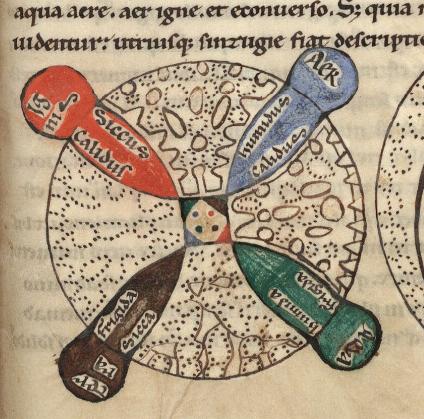 aqua aere. aer igne. et econuerso. Sz quia
uidentur: utriusq; sinzugie fiat descriptio
Ig
nis
Siccus
calidus
Aer
humidus
calidus
frigida
sicca
Ter
ra
frigida
humida
Aqua